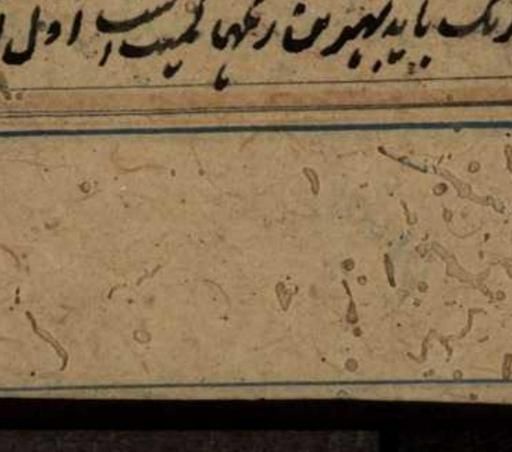 رنک باید بهترین رنکها کمیت است اول